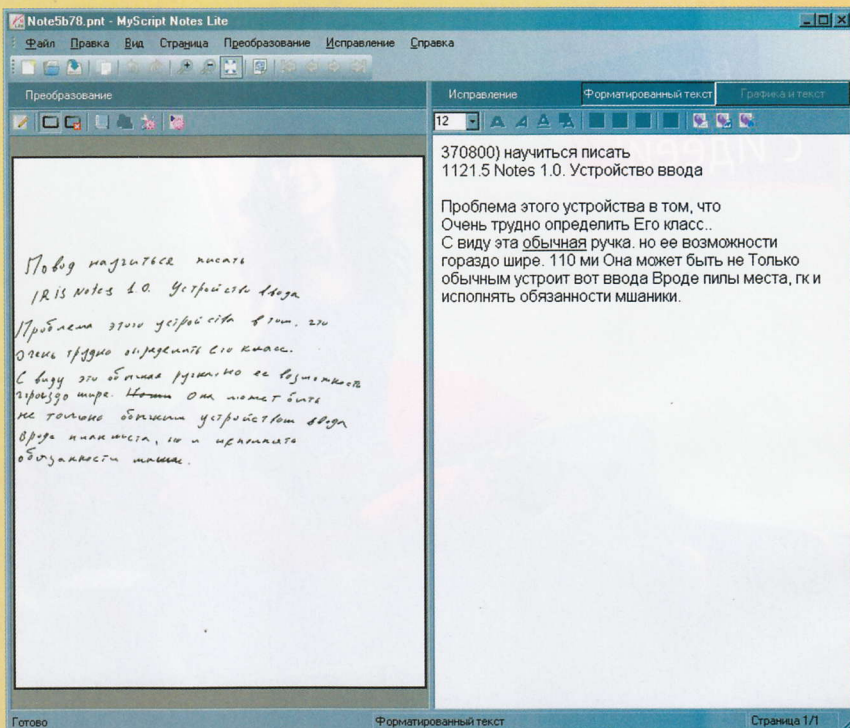 Note5b78.pnt - MyScript Notes Lite
Файл Правка Вид Страница Преобразование Исправление Справка
Преобразование
Исправление Форматированный текст Графика и текст
12
Повод научиться писать
IRIS Notes 1.0. Устройство ввода
Проблема этого устройства в том, что
очень трудно определить его класс.
С виду это обычная ручка. но ее возможности
гораздо шире. Она может быть
не только обычным устройством ввода
вроде планшета, но и исполнять
обязанности мыши.
370800) научиться писать
1121.5 Notes 1.0. Устройство ввода
Проблема этого устройства в том, что
Очень трудно определить Его класс..
С виду эта обычная ручка. но ее возможности
гораздо шире. 110 ми Она может быть не Только
обычным устроит вот ввода Вроде пилы места, гк и
исполнять обязанности мшаники.
Готово
Форматированный текст
Страница 1/1